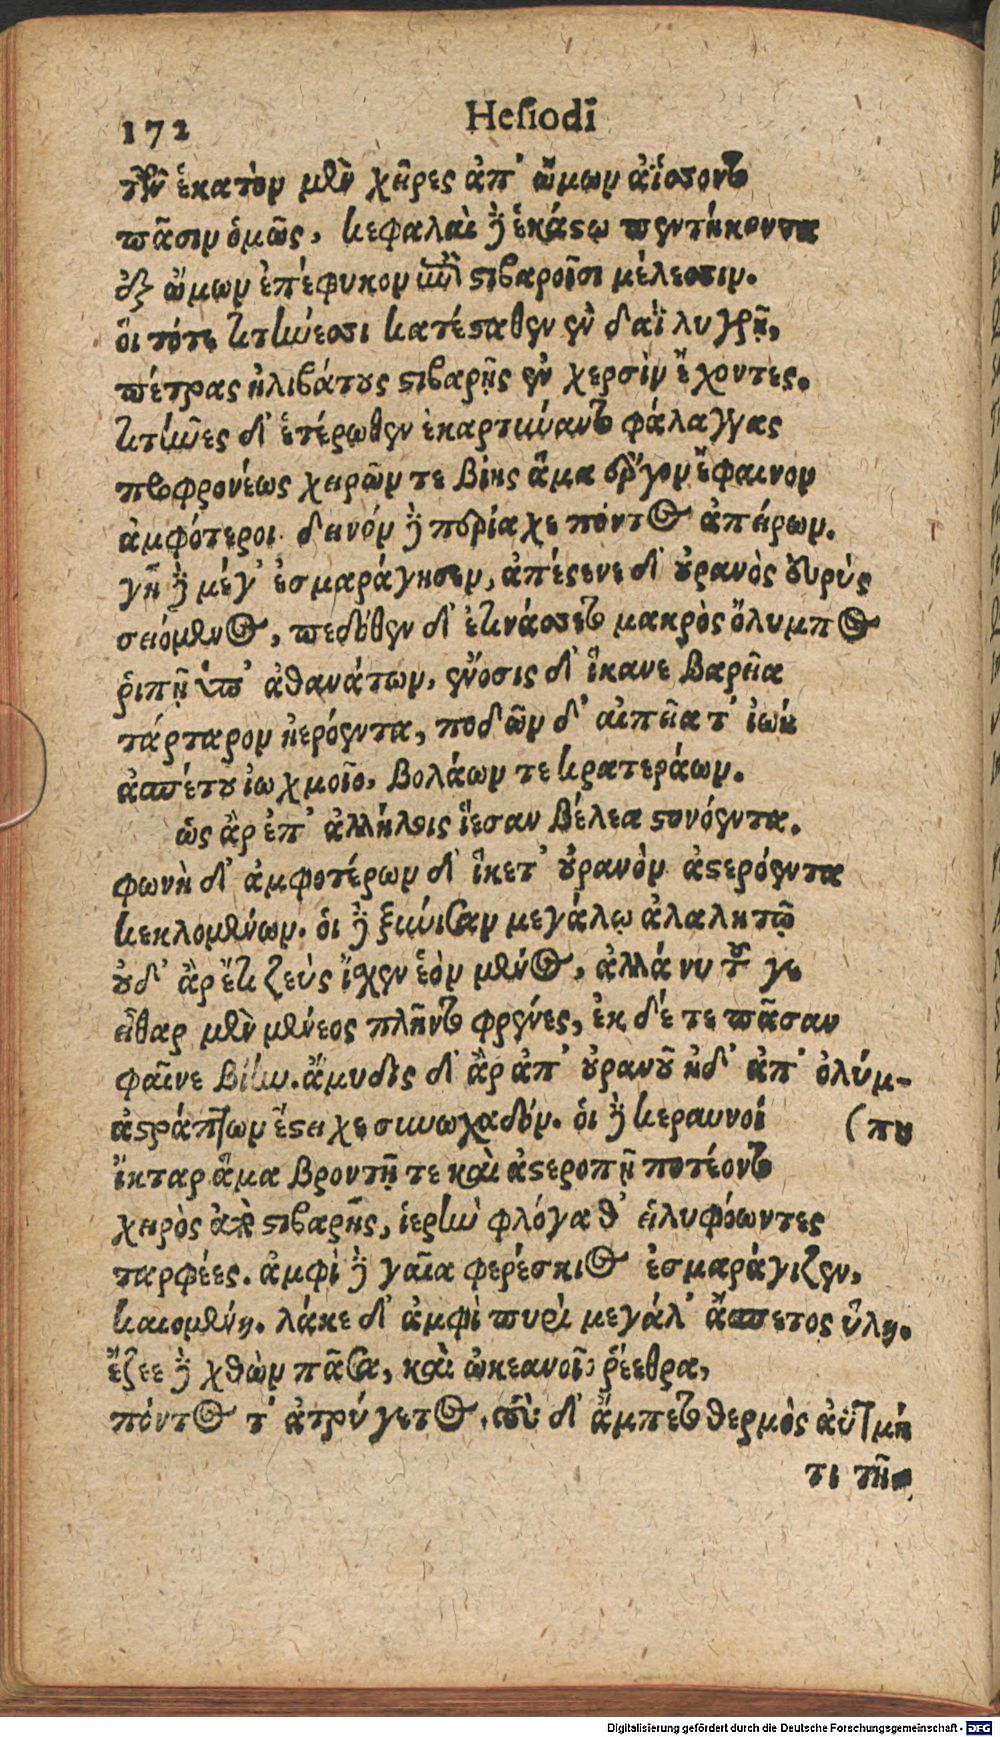 172 Hesiodi
τῶν ἑκατὸν μὲν χεῖρες ἀπ' ὤμων ἀΐσσοντο
πᾶσιν ὁμῶς, κεφαλαὶ δὲ ἑκάστῳ πεντήκοντα
ἐξ ὤμων ἐπέφυκον ἐπὶ στιβαροῖσι μέλεσσιν.
οἳ τότε τιτήνεσσι κατέσταθεν ἐν δαῒ λυγρῇ,
πέτρας ἠλιβάτους στιβαρῇς ἐν χερσὶν ἔχοντες.
τιτῆνες δ' ἑτέρωθεν ἐκαρτύναντο φάλαγγας
προφρονέως χειρῶν τε βίης ἅμα ἔργον ἔφαινον
ἀμφότεροι. δεινὸν δὲ περίαχε πόντος ἀπείρων.
γῆ δὲ μέγ' ἐσμαράγησεν, ἀπέστενε δ' οὐρανὸς εὐρύς
σειόμενος, πεδόθεν δ' ἐτινάσσετο μακρὸς ὄλυμπος
ῥιπῇ ὑπ' ἀθανάτων, ἔνοσις δ' ἵκανε βαρεῖα
τάρταρον ἠερόεντα, ποδῶν δ' αἰπεῖά τ' ἰωὴ
ἀσπέτου ἰωχμοῖο, βολάων τε κρατεράων.
ὣς ἂρ ἐπ' ἀλλήλοις ἵεσαν βέλεα στονόεντα.
φωνὴ δ' ἀμφοτέρων δ' ἵκετ' οὐρανὸν ἀστερόεντα
κεκλομένων. οἱ δὲ ξύνισαν μεγάλῳ ἀλαλητῷ
οὐδ' ἂρ ἔτι ζεὺς ἴσχεν ἑὸν μένος, ἀλλά νυ τοῦ γε
εἶθαρ μὲν μένεος πλῆντο φρένες, ἐκ δέ τε πᾶσαν
φαῖνε βίην. ἄμυδις δ' ἂρ ἀπ' οὐρανοῦ ἠδ' ἀπ' ὀλύμ-
ἀστράπτων ἔστειχε συνωχαδόν. οἱ δὲ κεραυνοὶ (που
ἴκταρ ἅμα βροντῇ τε καὶ ἀστεροπῇ ποτέοντο
χειρὸς ἀπὸ στιβαρῆς, ἱερὴν φλόγα θ' εἰλυφόωντες
ταρφέες. ἀμφὶ δὲ γαῖα φερέσβιος ἐσμαράγιζεν,
καιομένη. λάκε δ' ἀμφὶ πυρὶ μεγάλ' ἄσπετος ὕλη.
ἔζεε δὲ χθὼν πᾶσα, καὶ ὠκεανοῖο ῥέεθρα,
πόντος τ' ἀτρύγετος. τοὺς δ' ἄμπετο θερμὸς ἀϋτμὴ
τι τῆνας